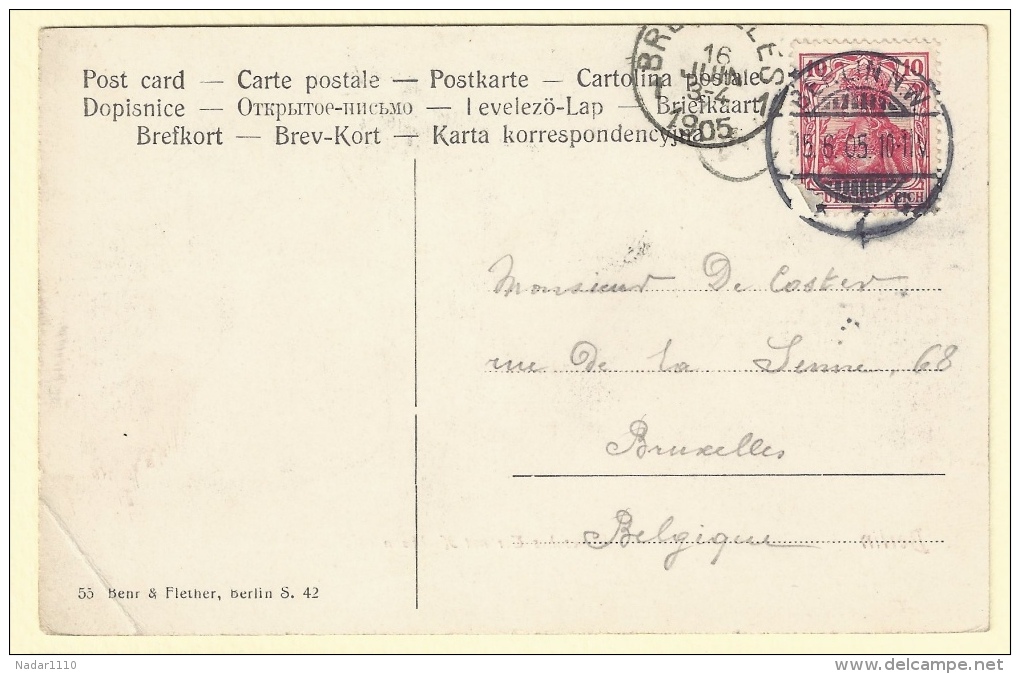 Post card — Carte postale — Postkarte — Cartolina postale
Dopisnice — Открытое-письмо — Levelezö-Lap — Briefkaart
Brefkort — Brev-Kort — Karta korrespondencyjna
BRUXELLES 1
16
JUIN
3-4
1905
10 10
DEUTSCHES REICH
BERLIN N.W.
15.6.05. 10-11V
7
Monsieur De Coster
rue de la Senne, 68
Bruxelles
Belgique
Berlin
55 Behr & Flether, Berlin S. 42
Nadar1110
www.delcampe.net